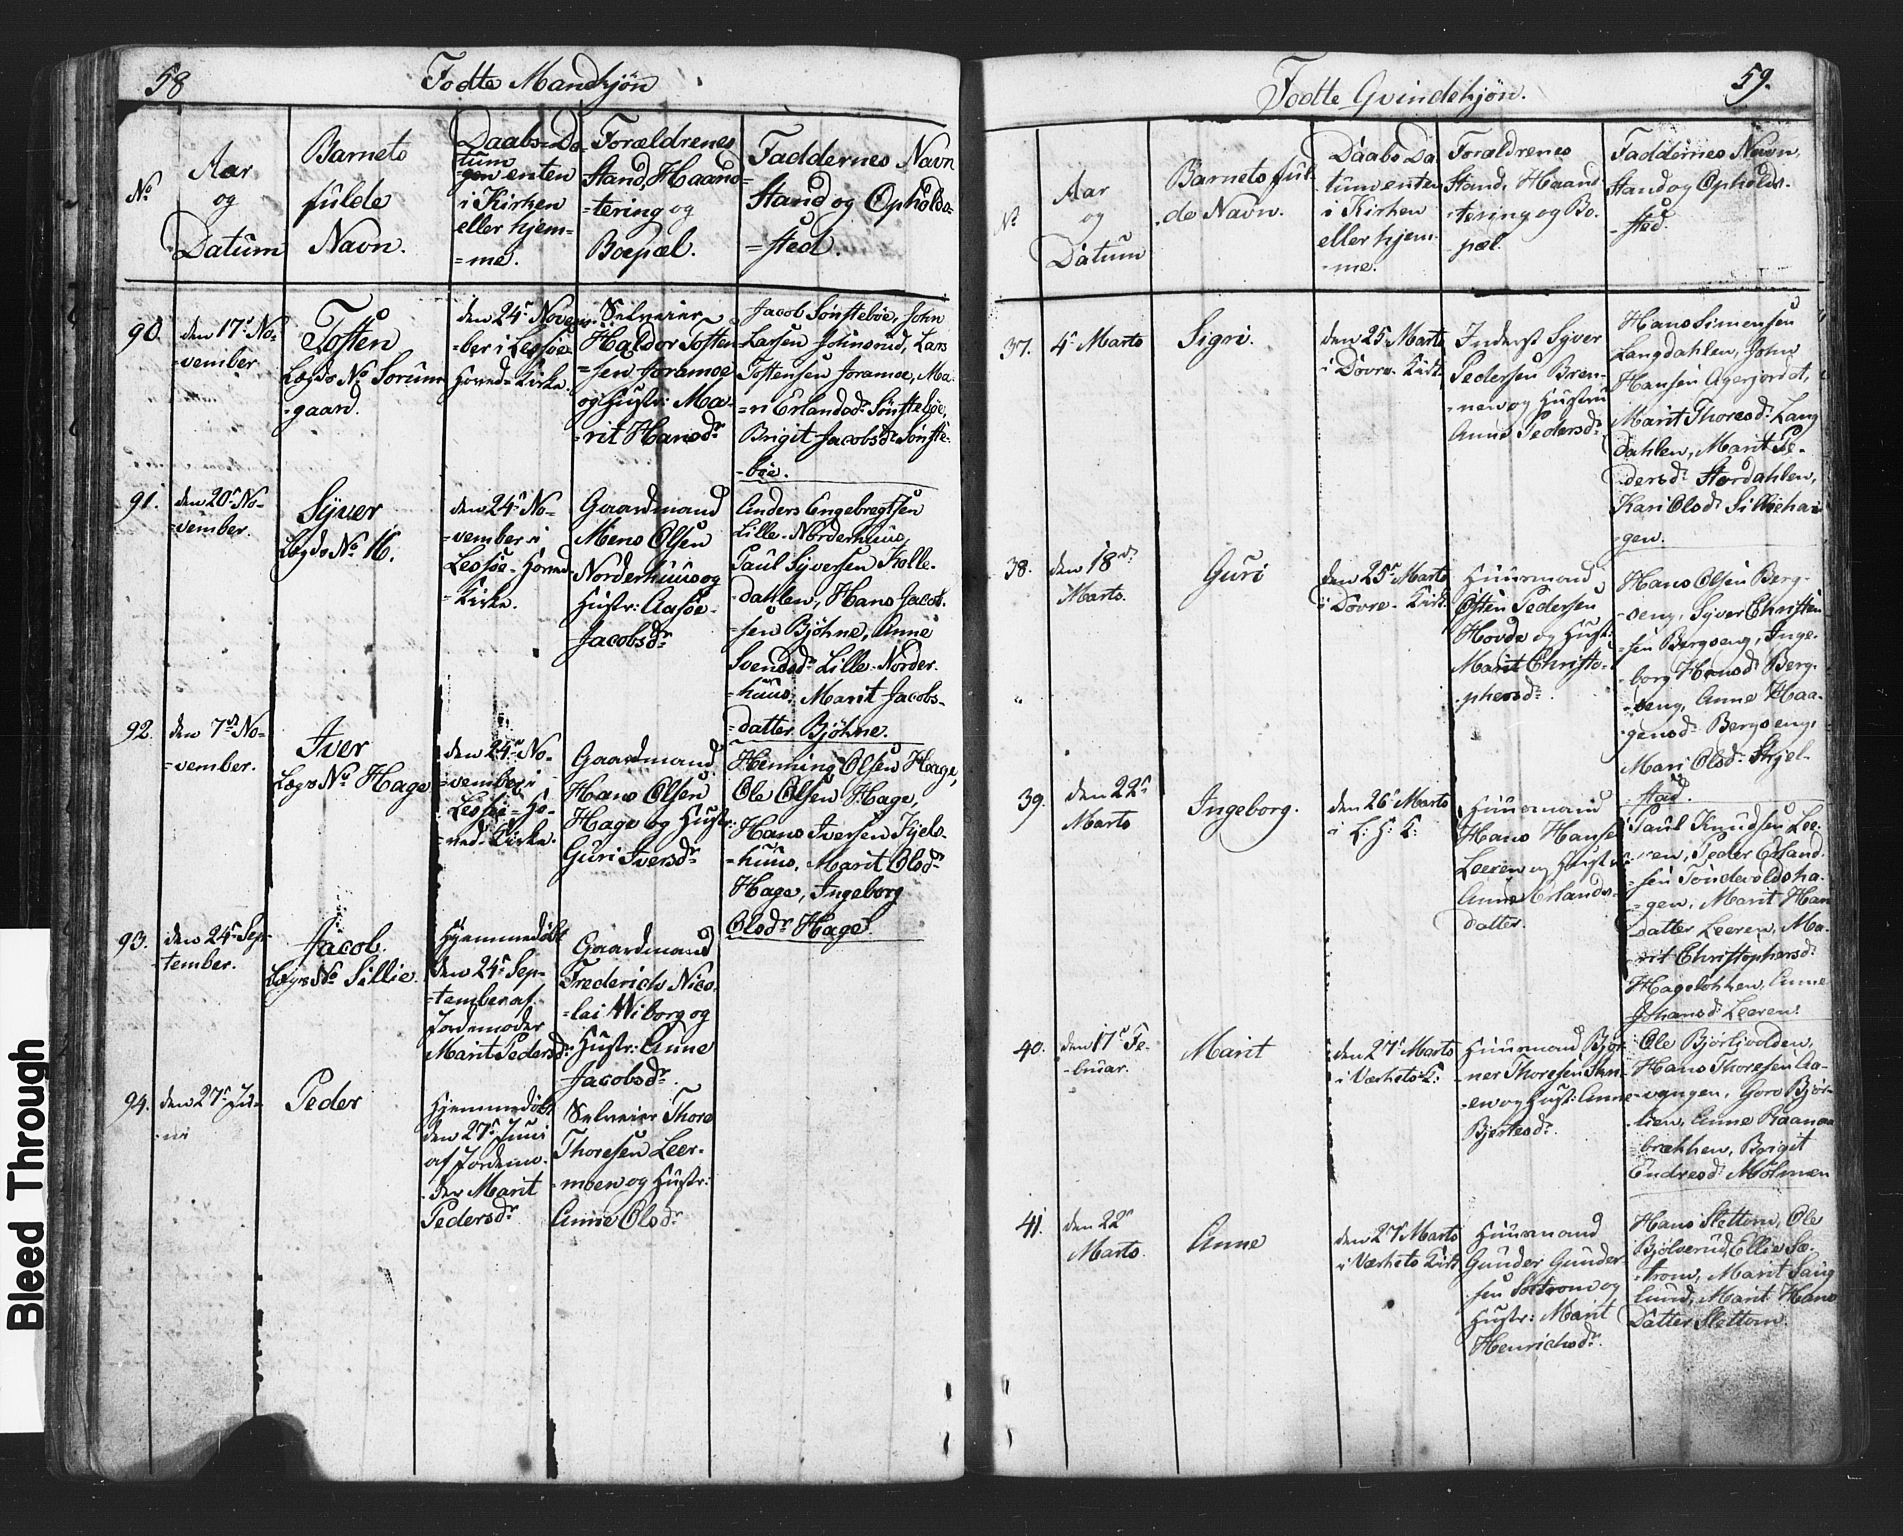 58
Fodte Mandkjøn
No
Aar
og
Datum
Barnets
fulde
Navn.
Daabs-Da-
tum
-gen enten
i Kirken
eller hjem-
-me.
Forældrenes
Stand, Haand-
-tering og
Boepæl.
Faddernes Navn
Stand og Opholds-
-sted.
90.
den 17de No-
-vember
Tosten
Lægds No Sorum-
-gaard.
den 24de Novem-
-ber i Lessøe
Hoved-Kirke.
Selveier
Haldor Tosten-
-sen Joramoe
og Hustr: Ma-
-rit Hansdr
Jacob Sønsteböe, John
Larsen Johnsrud, Lars
Tostensen Joramoe, Ma-
-ri Erlandsdr Sønsteböe,
Brigit Jacobsdr Sønste-
-böe.
91.
den 20de No-
-vember.
Syver
Lægds No 16.
den 24de No-
-vember i
Lessøe-Hoved-
-Kirke.
Gaardmand
Mens Olsen
Norderhuus og
Hustr: Aasøe
Jacobsdr
Anders Engebregtsen
Lille-Norderhuus,
Paul Syversen Kolle-
-dahlen, Hans Jacob-
-sen Bjöhne, Anne
Svendsdr Lille-Norder-
-huus, Marit Jacobs-
-datter Bjöhne.
92.
den 7de No-
-vember.
Iver
Lægds No Hage
den 24de No-
-vember i
Lessøe-Ho-
-ved-Kirke.
Gaardmand
Hans Olsen
Hage og Hustr:
Guri Iversdr
Henning Olsen Hage,
Ole Olsen Hage,
Hans Iversen Kjels-
-huus, Marit Olsdr
Hage, Ingeborg
Olsdr Hage.
93.
den 24de Sep-
-tember.
Jacob.
Lægds No Sillie.
Hjemmedöbt
den 24de Sep-
-tember af
Jordemoder
Marit Pedersdr
Gaardmand
Frederich Nico-
-lai Wiborg og
Hustr: Anne
Jacobsdr
94.
den 27de Ju-
-ni
Peder
Hjemmedöbt
den 27de Juni
af Jordemo-
-der Marit
Pedersdr
Selveier Thore
Thoresen Leer-
-moen og Hustr:
Anne Olsdr
Fodte Qvindekjøn.
59.
No
Aar
og
Datum
Barnets ful-
-de Navn.
Daabs Da-
tum enten
i Kirken
eller hjem-
-me.
Forældrenes
Stand, Haand-
-tering og Bo-
pæl.
Faddernes Navn,
Stand og Opholds-
-sted.
37.
4de Marts
Sigri.
den 25 Marts
i Dovre-Kirk.
Inderst Syver
Pedersen Bren-
-nen og Hustru
Anne Pedersdr
Hans Simensen
Langdahlen, John
Hansen Agerjordet,
Marit Thoresdr Lang-
dahlen, Marit Pe-
-dersdr Stordahlen,
Kari Olsdr Silliehau-
-gen.
38.
den 18de
Marts.
Guri
den 25de Marts
i Dovre-Kirk.
Huusmand
Østen Pedersen
Hovde og Hust:
Marit Christo-
-phersdr
Hans Olsen Berg-
-seng, Syver Christen-
-sen Bergseng, Inge-
-borg Hansdr Berg-
-seng, Anne Haa-
-gensdr Bergseng,
Mari Olsdr Skjel-
-stad.
39.
den 22de
Marts
Ingeborg.
den 26de Marts
i L: H: K:
Huusmand
Hans Hansen
Leeren og Hustr:
Anne Erlands-
datter.
Paul Knudsen Lee-
-ren, Peder Erland-
-sen Tondevoldsha-
-gen, Marit Hans
Datter Leeren, Ma-
-rit Christophersdr
Hageløkken, Anne
Johansdr Leeren.
40.
den 17de Fe-
-bruar.
Marit
den 27de Marts
i Værkets K:
Huusmand Bjør-
-ner Thoresen
-en og Hust: Anne
Bjertesdr
Ole Björlivolden,
Hans Thoresen Aa-
-vangen, Goro Björ-
-lien, Anne Raanaa-
-brækken, Brigit
Endresdr Mølmen
41.
den 22de
Marts.
Anne
den 27de Marts
i Værkets Kirk.
Huusmand
Gunder Gunder-
-sen og
Hustr: Marit
Henrichsdr
Hans Slettom, Ole
Bjölverud, Ellie Sæ-
-trom, Marit
-lund, Marit Hans
Datter Slettom.
Bleed Through